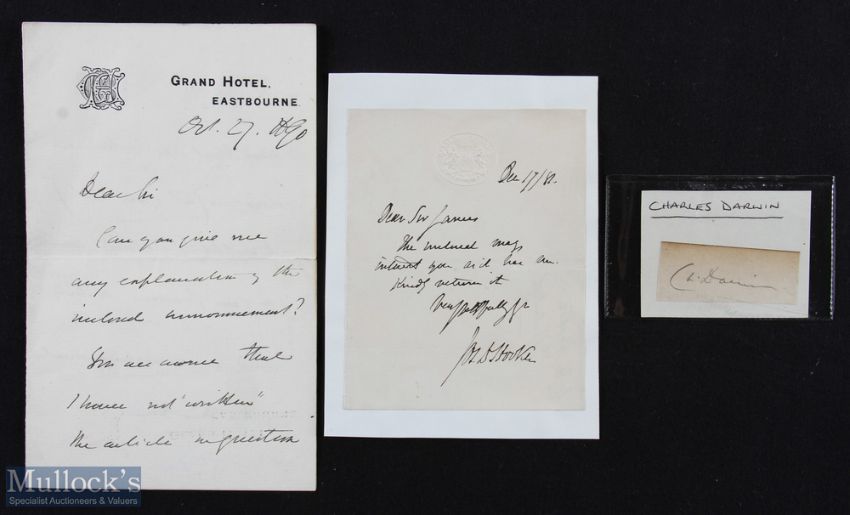 GRAND HOTEL,
EASTBOURNE.
Oct. 27. 1890
Dear Sir
Can you give me
any explanation of the
inclosed announcement?
You are aware that
I have not "written"
the article in question
Dec 17/81.
Dear Sir James
The inclosed may
interest you as it has me.
Kindly return it
Very
Jos D Hooker
CHARLES DARWIN
Ch. Darwin
Mullock's
Specialist Auctioneers & Valuers